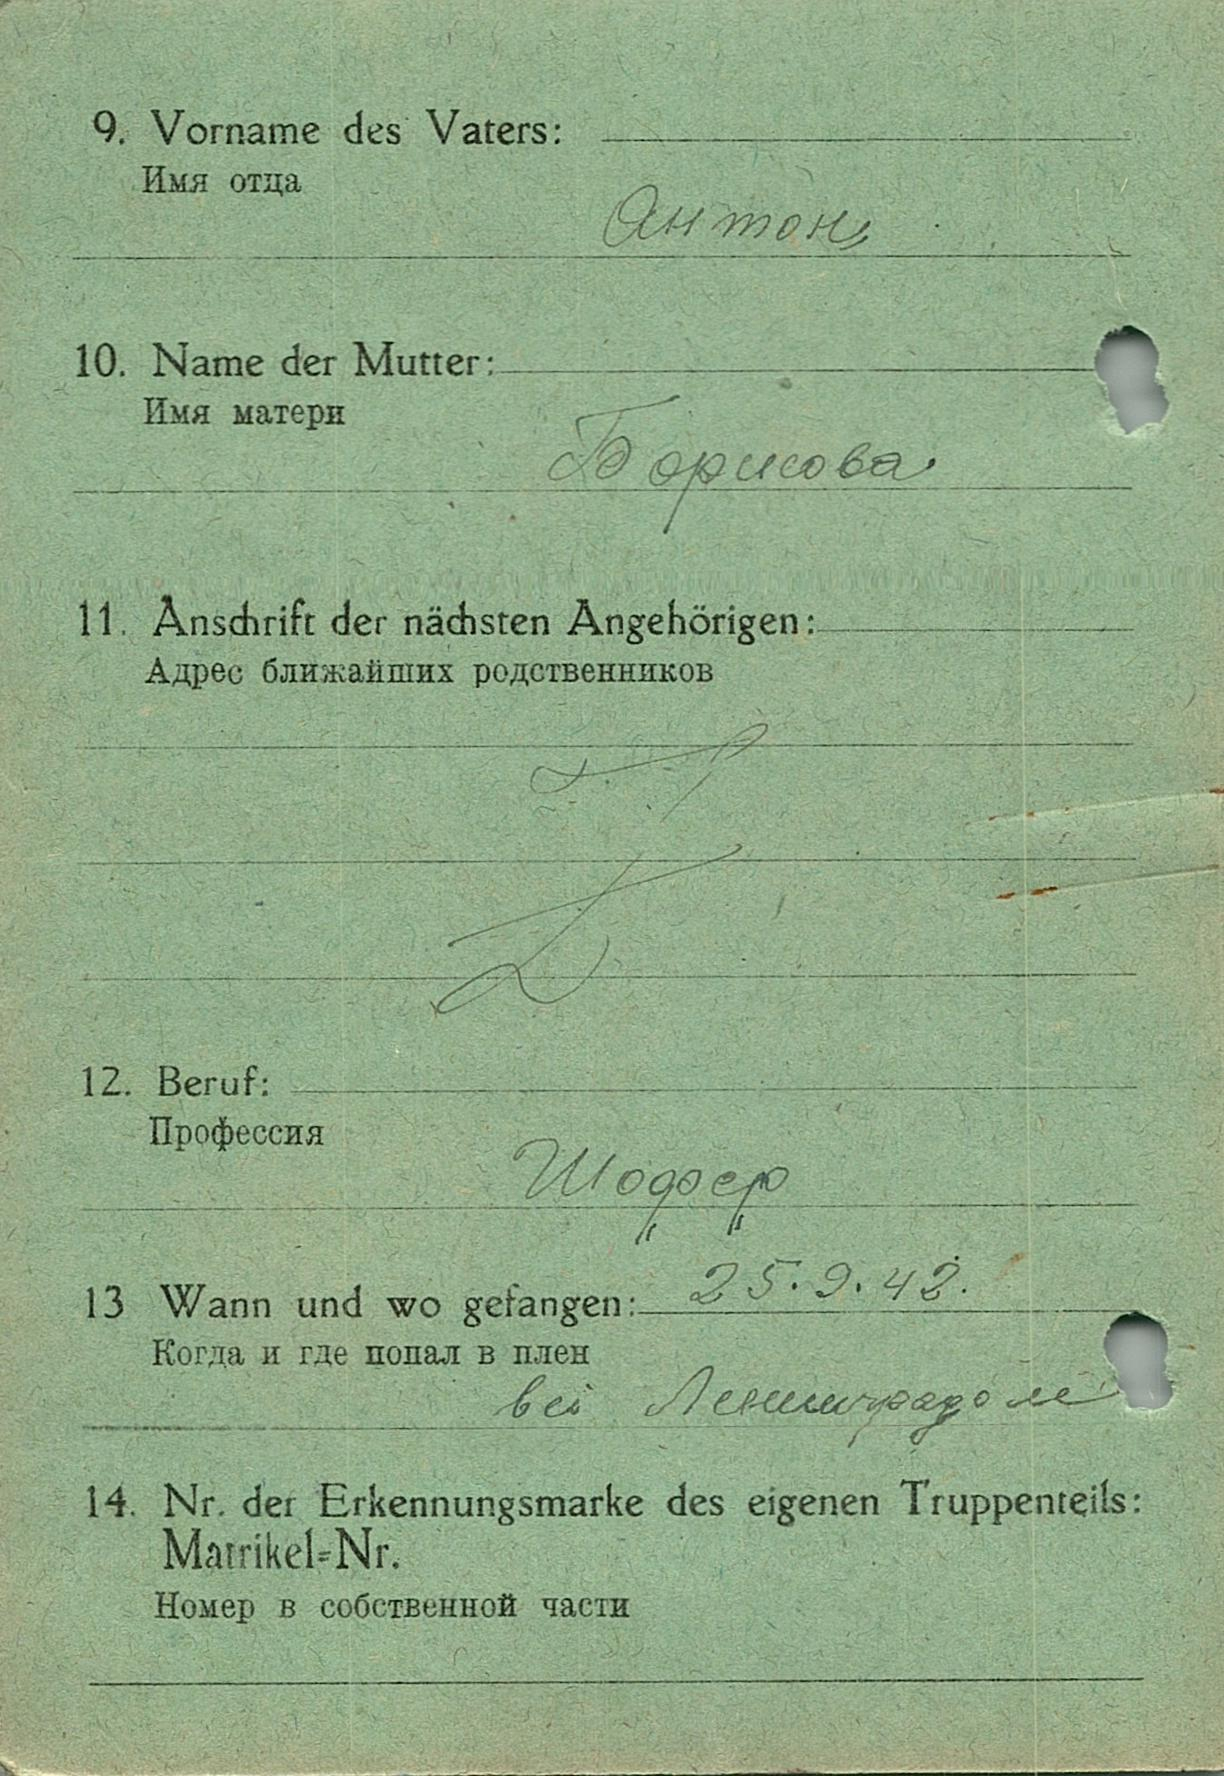 9. Vorname des Vaters:
Имя отца
Антон
10. Name der Mutter:
Имя матери
Борисова
11. Anschrift der nächsten Angehörigen:
Адрес ближайших родственников
12. Beruf:
Профессия
Шофер
13 Wann und wo gefangen: 25.9.42.
Когда и где попал в плен
bei Ленинградом
14. Nr. der Erkennungsmarke des eigenen Truppenteils:
Matrikel=Nr.
Номер в собственной части